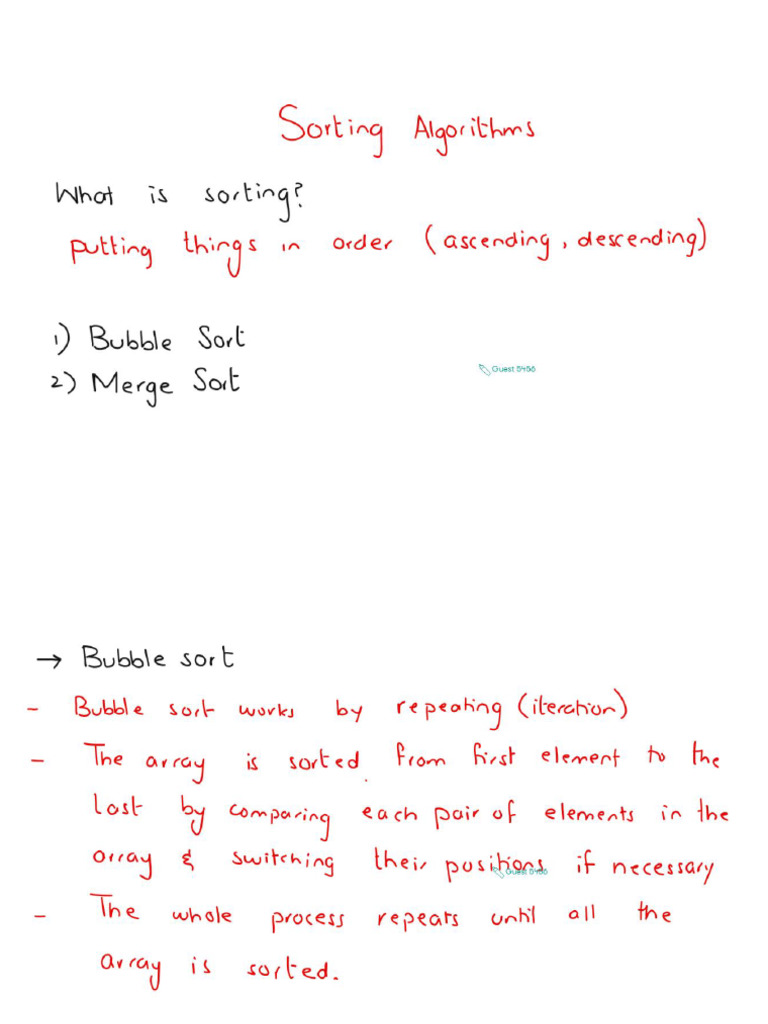 Sorting Algorithms
What is sorting?
putting things in order (ascending, descending)
1) Bubble Sort
Guest 5456
2) Merge Sort
→ Bubble sort
- Bubble sort works by repeating (iteration)
- The array is sorted from first element to the
last by comparing each pair of elements in the
array & switching their positions if necessary
Guest 5456
- The whole process repeats until all the
array is sorted.